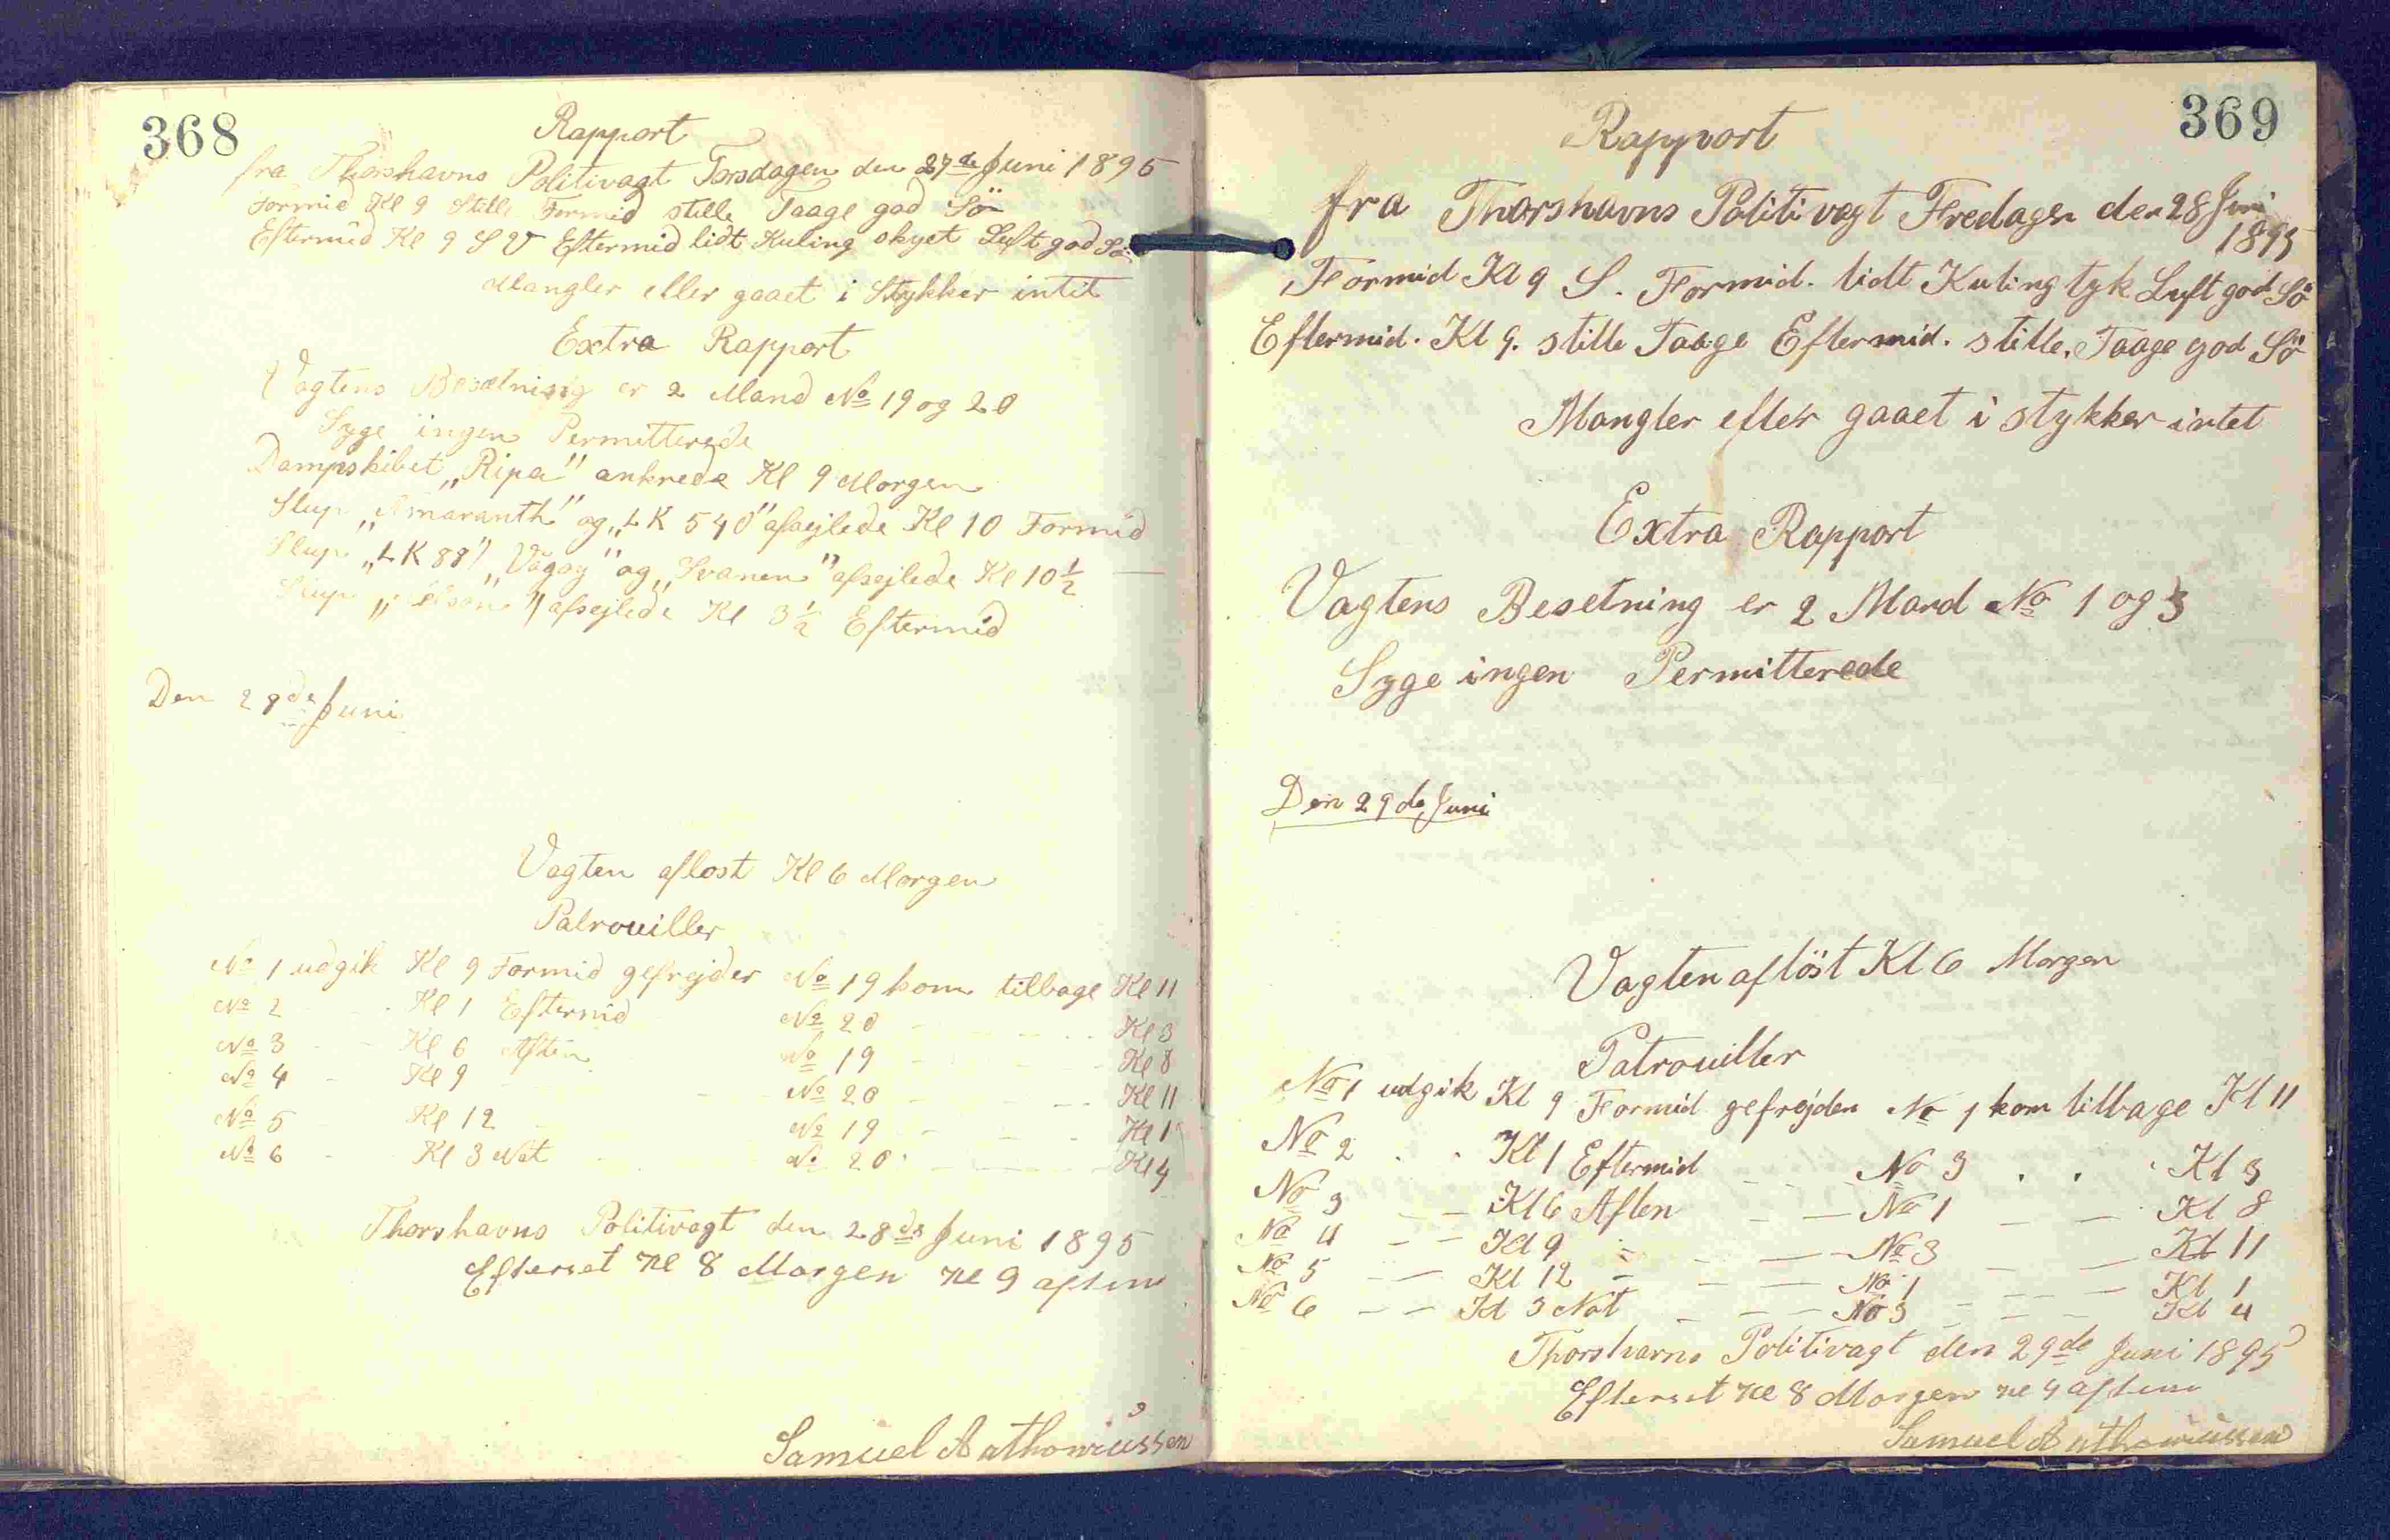 368
Rapport
fra Thorshavns Politivagt Torsdagen den 27de Juni 1895
Formid Kl 9 Stille Formid stille Taage god Sö
Eftermid Kl 9 S V Eftermid lidt Kuling skyet Luft god Sö
Mangler eller gaaet i Stykker intit
Extra Rapport
Vagtens Besætning er 2 Mand No 19 og 20
Syge ingen Permitterede
Dampskibet „Ripa" ankrede Kl 9 Morgen
Slup „Amaranth" og „LK 540" afsejlede Kl 10 Formid
Slup „LK 88", „Vågöy" og „Svanen" afsejlede Kl 10½ —
Slup afsejlede Kl 3½ Eftermid
Den 28de Juni
Vagten aflost Kl 6 Morgen
Patrouiller
No 1 udgik Kl 9 Formid gefrejder No 19 kom tilbage Kl 11
No 2 - - Kl 1 Eftermid No 20 - - - Kl 3
No 3 - - Kl 6 Aften No 19 - - - Kl 8
No 4 - Kl 9 - - No 20 - - - Kl 11
No 5 - Kl 12 - No 19 - - - Kl 1
No 6 - Kl 3 Nat - No 20 - - - Kl 4
Thorshavns Politivagt den 28de Juni 1895
Efterset Kl 8 Morgen Kl 9 aften
Samuel Anthoniussen
369
Rapport
fra Thorshavns Politivagt Fredagen den 28 Juni
1895
Formid Kl 9 S. Formid. lidt Kuling tyk Luft god Sö
Eftermid. Kl 9. stille Taage Eftermid. stille. Taage god Sö
Mangler eller gaaet i stykker intet
Extra Rapport
Vagtens Besetning er 2 Mand No 1 og 3
Syge ingen Permitterede
Den 29de Juni
Vagten aflöst Kl 6 Morgen
Patrouiller
No 1 udgik Kl 9 Formid gefrejden No 1 kom tilbage Kl 11
No 2 . . Kl 1 Eftermid - - No 3 . . . Kl 3
No 3 - - Kl 6 Aften - - No 1 - - Kl 8
No 4 - - Kl 9 - - - No 3 - - Kl 11
No 5 - - Kl 12 - - - No 1 - - - Kl 1
No 6 - - Kl 3 Nat - - - No 3 - - - Kl 4
Thorshavns Politivagt den 29de Juni 1895
Efterset Kl 8 Morgen Kl 9 aften
Samuel Anthoniussen